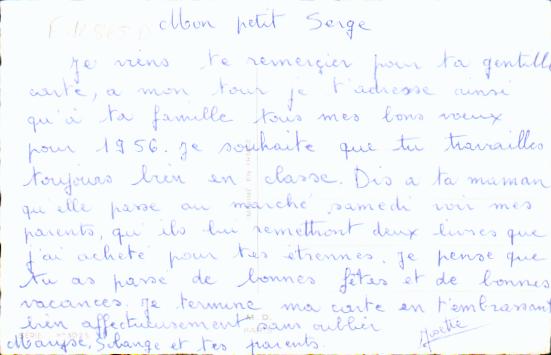 Mon petit Serge
Je viens te remercier pour ta gentille
carte, a mon tour je t'adresse ainsi
qu'à ta famille tous mes bons voeux
pour 1956. Je souhaite que tu travailles
toujours bien en classe. Dis a ta maman
qu'elle passe au marché samedi voir mes
parents, qu'ils lui remettront deux livres que
j'ai acheté pour tes étrennes. Je pense que
tu as passé de bonnes fêtes et de bonnes
vacances. Je termine ma carte en t'embrassant
bien affectueusement sans oublier
Maryse, Solange et tes parents.